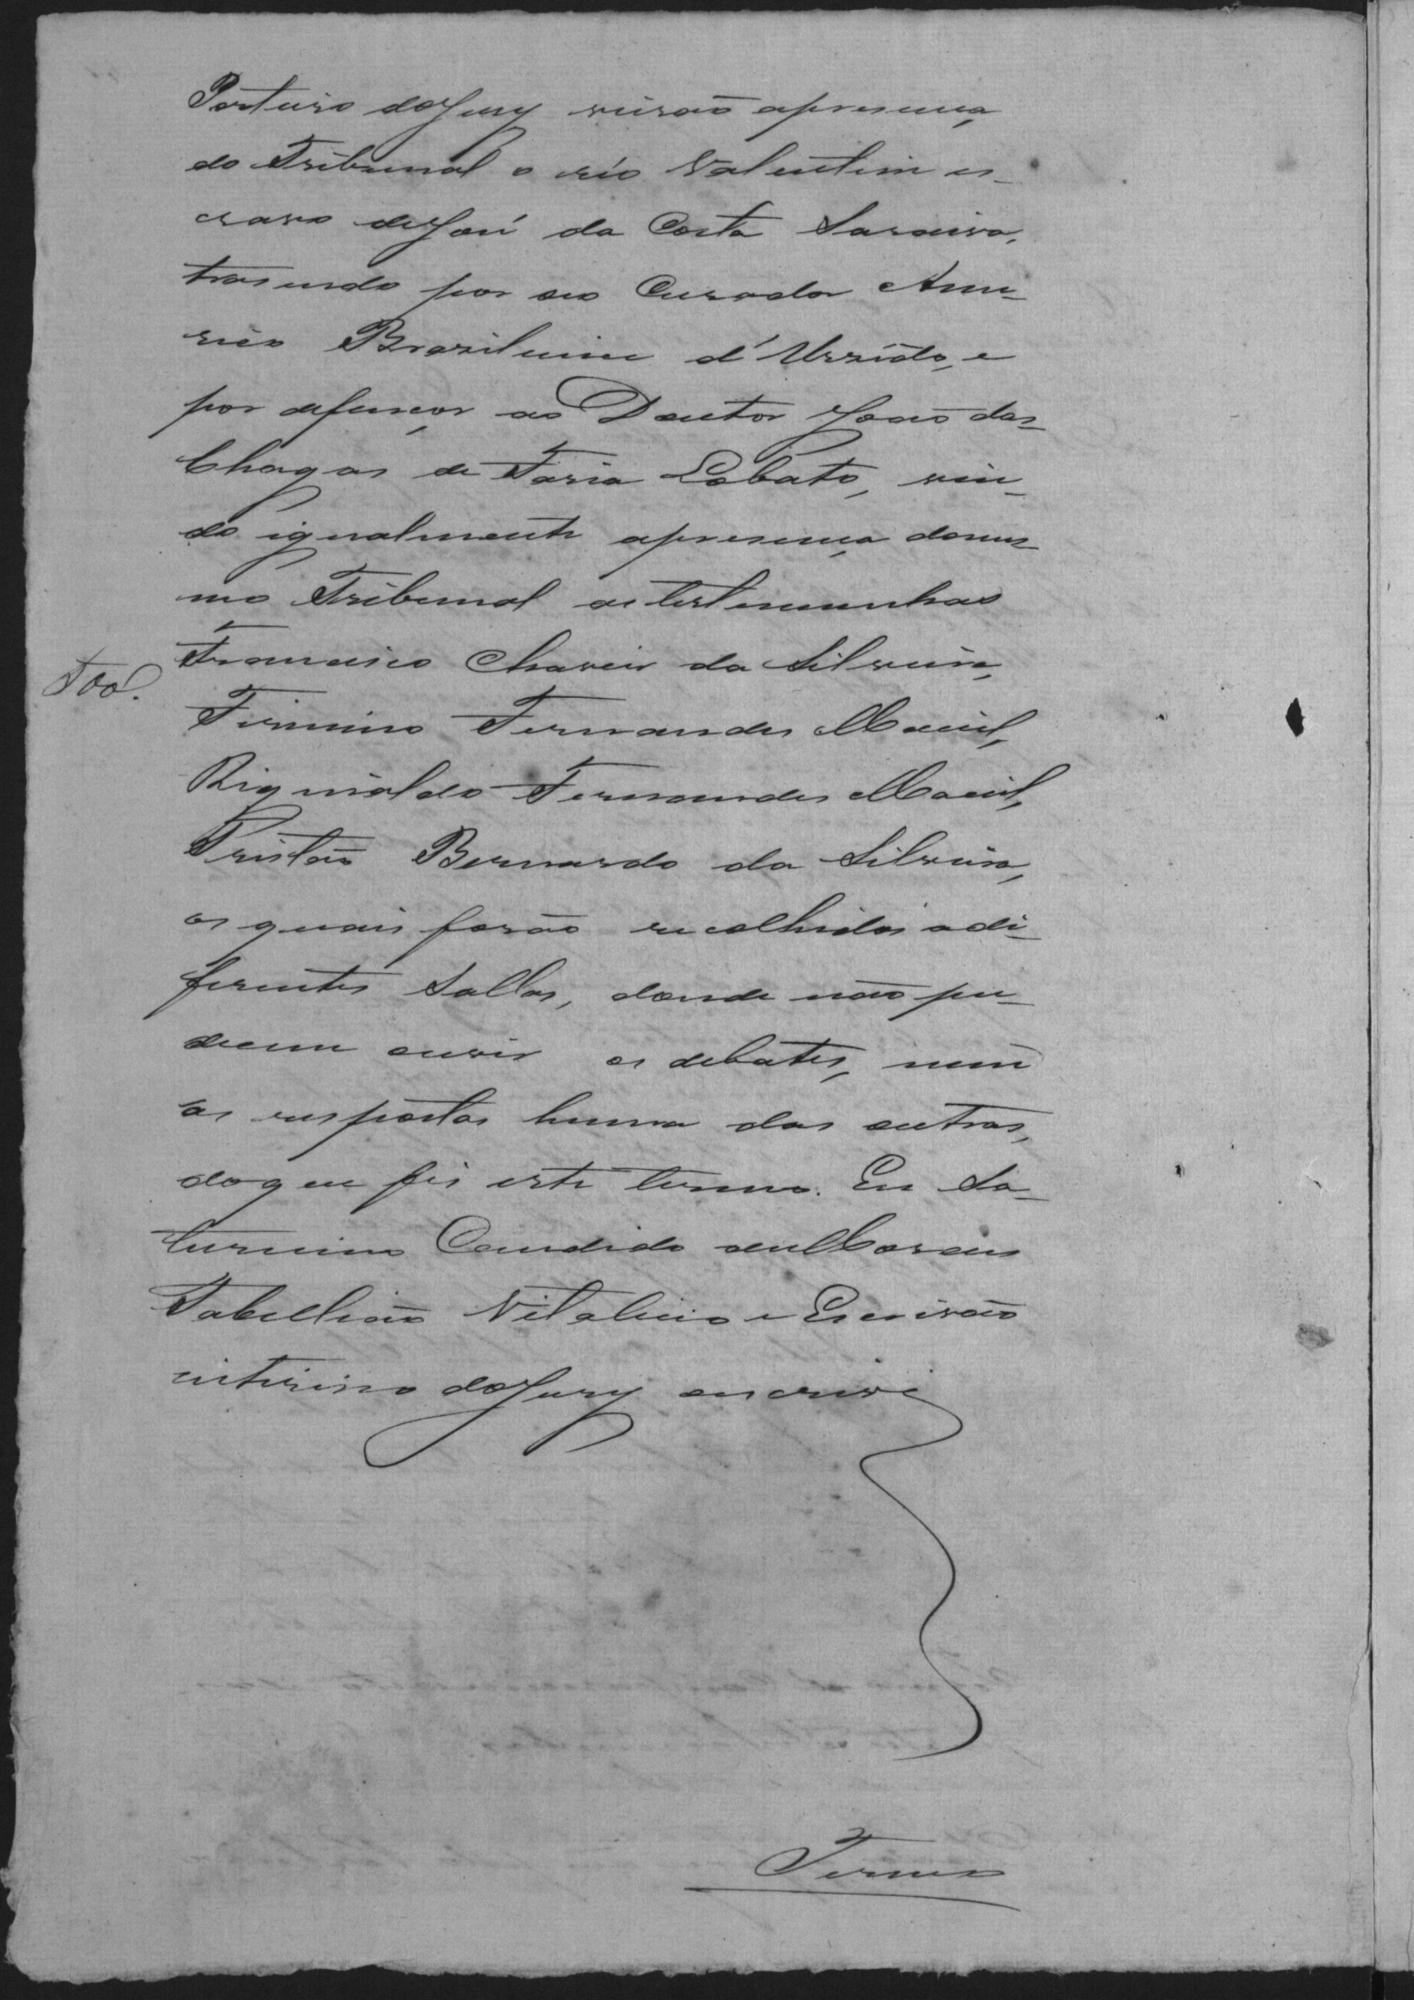 Porteiro do Jury virão apresença
do Tribunal o réo Valentim es-
cravo de José da Costa Saraiva,
trasendo por seo Curador Ame-
rico Brazileiro d'
por defençor ao Doutor João das
Chagas de Faria Lobato, vin-
do igualmente apresença domes-
mo Tribunal as testemunhas
Francisco Chavier da Silveira,
Firmino Fernandes Maciel,
Riginaldo Fernandes Maciel,
Tristão Bernardo da Silveira,
os quais forão recolhidos adi-
ferentes Sallas, donde não pu-
decem ouvir os debates, nem
as respostas huma das outras,
doque fis este termo. Eu Sa-
turnino Candido de Moraes
Tabellião Vitalicio e Escrivão
interino do Jury escrivi
Termo